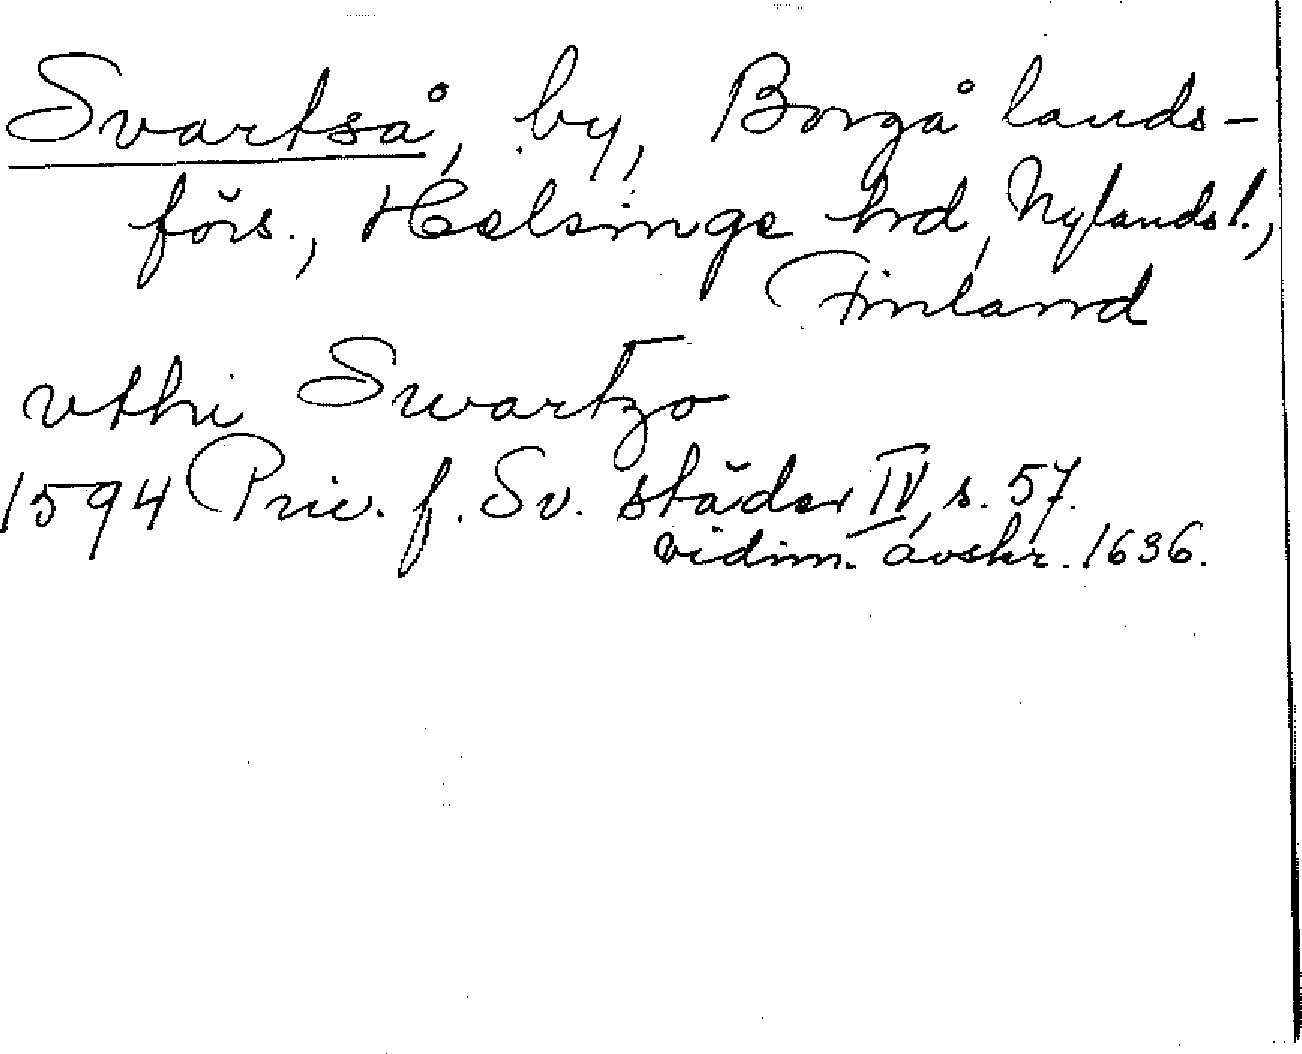 Svartså, by, Borgå lands-
förs., Helsinge hrd, Nylands l.,
Finland
vthi Swartzo
1594 Priv. f. Sv. städer IV, s. 57.
vidim. avskr. 1636.